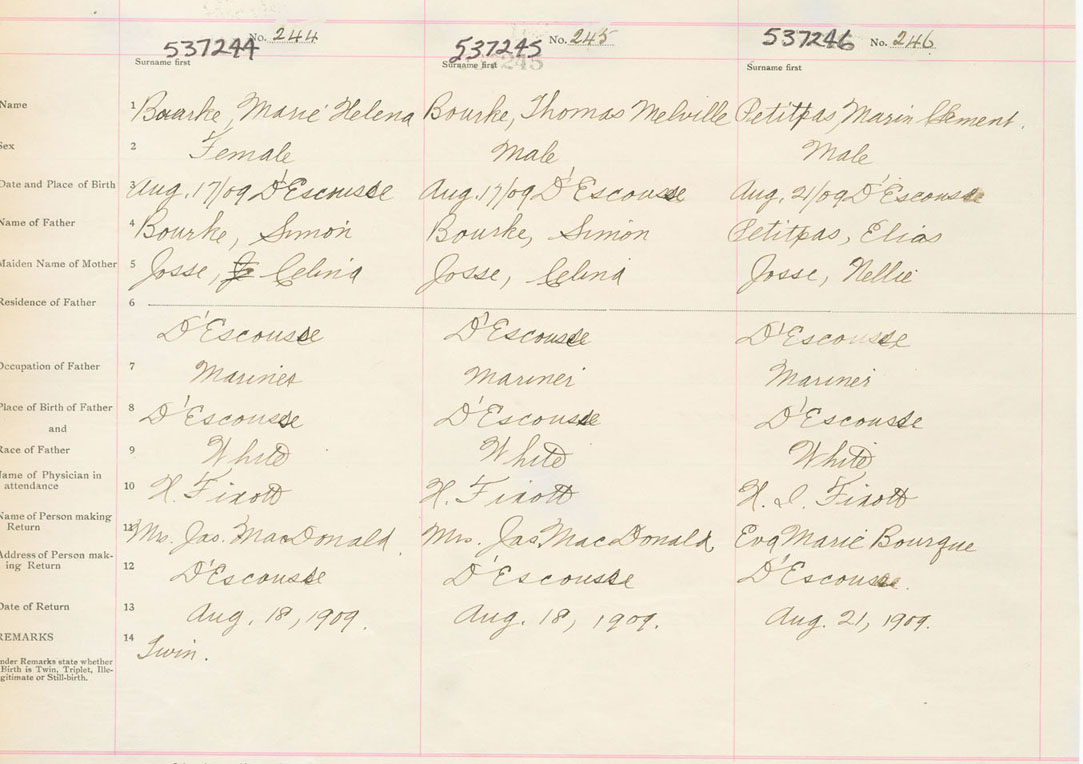 No. 244 No. 245 No. 246
537244 537245 537246
Surname first Surname first 245 Surname first
Name 1 Bourke, Marie Helena Bourke, Thomas Melville Petitpas, Marin Clement.
Sex 2 Female Male Male
Date and Place of Birth 3 Aug. 17/09 D'Escousse Aug. 17/09 D'Escousse Aug. 21/09 D'Escousse
Name of Father 4 Bourke, Simon Bourke, Simon Petitpas, Elias
Maiden Name of Mother 5 Josse, Celina Josse, Celina Josse, Nellie
Residence of Father 6
D'Escousse D'Escousse D'Escousse
Occupation of Father 7 Mariner Mariner Mariner
Place of Birth of Father 8 D'Escousse D'Escousse D'Escousse
and
Race of Father 9 White White White
Name of Physician in
attendance 10 H. Fixott H. Fixott H. I. Fixott
Name of Person making
Return 11 Mrs. Jas. MacDonald. Mrs. Jas. MacDonald, Eva Marie Bourque
Address of Person mak-
ing Return 12 D'Escousse D'Escousse D'Escousse.
Date of Return 13 Aug. 18, 1909. Aug. 18, 1909. Aug. 21, 1909.
REMARKS 14 Twin.
nder Remarks state whether
Birth is Twin, Triplet, Ille-
gitimate or Still-birth.